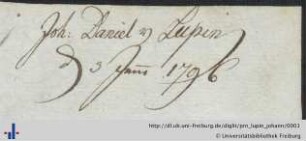 Joh: Daniel v Lupin
d 3 Janu 1796
http://dl.ub.uni-freiburg.de/diglit/prn_lupin_johann/0001
© Universitätsbibliothek Freiburg